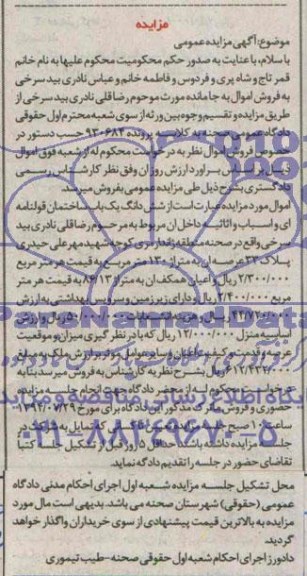 مزایده
موضوع: آگهی مزایده عمومی
با سلام، با عنایت به صدور حکم محکومیت محکوم علیها به نام خانم
قمر تاج و شاه پری و فردوس و فاطمه خانم و عباس نادری بید سرخی
به فروش اموال به جا مانده مورث مرحوم رضاقلی نادری بید سرخی از
طریق مزایده و تقسیم وجوه بین ورثه از سوی شعبه محترم اول حقوقی
دادگاه عمومی صحنه به کلاسه پرونده ۹۳۰۶۸۴ حسب دستور در
خصوص فروش اموال نظر به درخواست محکوم له از شعبه فوق اموال
ذیل بر اساس برآورد ارزش روز آن وفق نظر کارشناس رسمی
دادگستری بشرح ذیل طی مزایده عمومی بفروش میرسد.
اموال مورد مزایده عبارت است از شش دانگ یک باب ساختمان قولنامه
ای و اسباب و اثاثیه داخل آن مربوط به مرحوم رضاقلی نادری بید
سرخی واقع در صحنه منطقه ژاندارمری کوچه شهید مهر علی حیدری
پلاک ۳۲ عرصه آن به متراژ ۱۳۰ متر مربع به قیمت هر متر مربع
۲/۳۰۰/۰۰۰ ریال و اعیان همکف آن به متراژ ۸۴/۱۳ به قیمت هر متر
مربع ۲/۴۰۰/۰۰۰ ریال و دارای زیرزمین و سرویس بهداشتی به ارزش
ریال و هزینه انشعابات ریال و ارزش
اساسیه منزل ۱۲/۰۰۰/۰۰۰ ریال که با در نظر گیری میزان و موقعیت
عرصه و قدمت و کیفیت اعیان و سایر عوامل موثر بر ارزش ملک به مبلغ
ریال بشرح نظریه کارشناس به فروش میرسد بنا به
درخواست محکوم له از محضر دادگاه جهت انجام جلسه مزایده
حضوری و فروش ملک مذکور این دادگاه برای مورخ ۱۳۹۴/۰۷/۲۹
ساعت ۱۰ صبح جلسه مزایده تعیین تا کسانی که تمایل به شرکت در
جلسه مزایده داشته باشند حداقل ۵ روز قبل از تشکیل جلسه کتبا
تقاضای حضور در جلسه را تقدیم دادگاه نماید.
محل تشکیل جلسه مزایده شعبه اول اجرای احکام مدنی دادگاه
عمومی (حقوقی) شهرستان صحنه می باشد. بدیهی است مال مورد
مزایده به بالاترین قیمت پیشنهادی از سوی خریداران واگذار خواهد
گردید.
دادورز اجرای احکام شعبه اول حقوقی صحنه - طیب تیموری
پایگاه اطلاع رسانی مناقصه و مزایده
۰۲۱-۸۸۳۴۹۶۷۰-۵